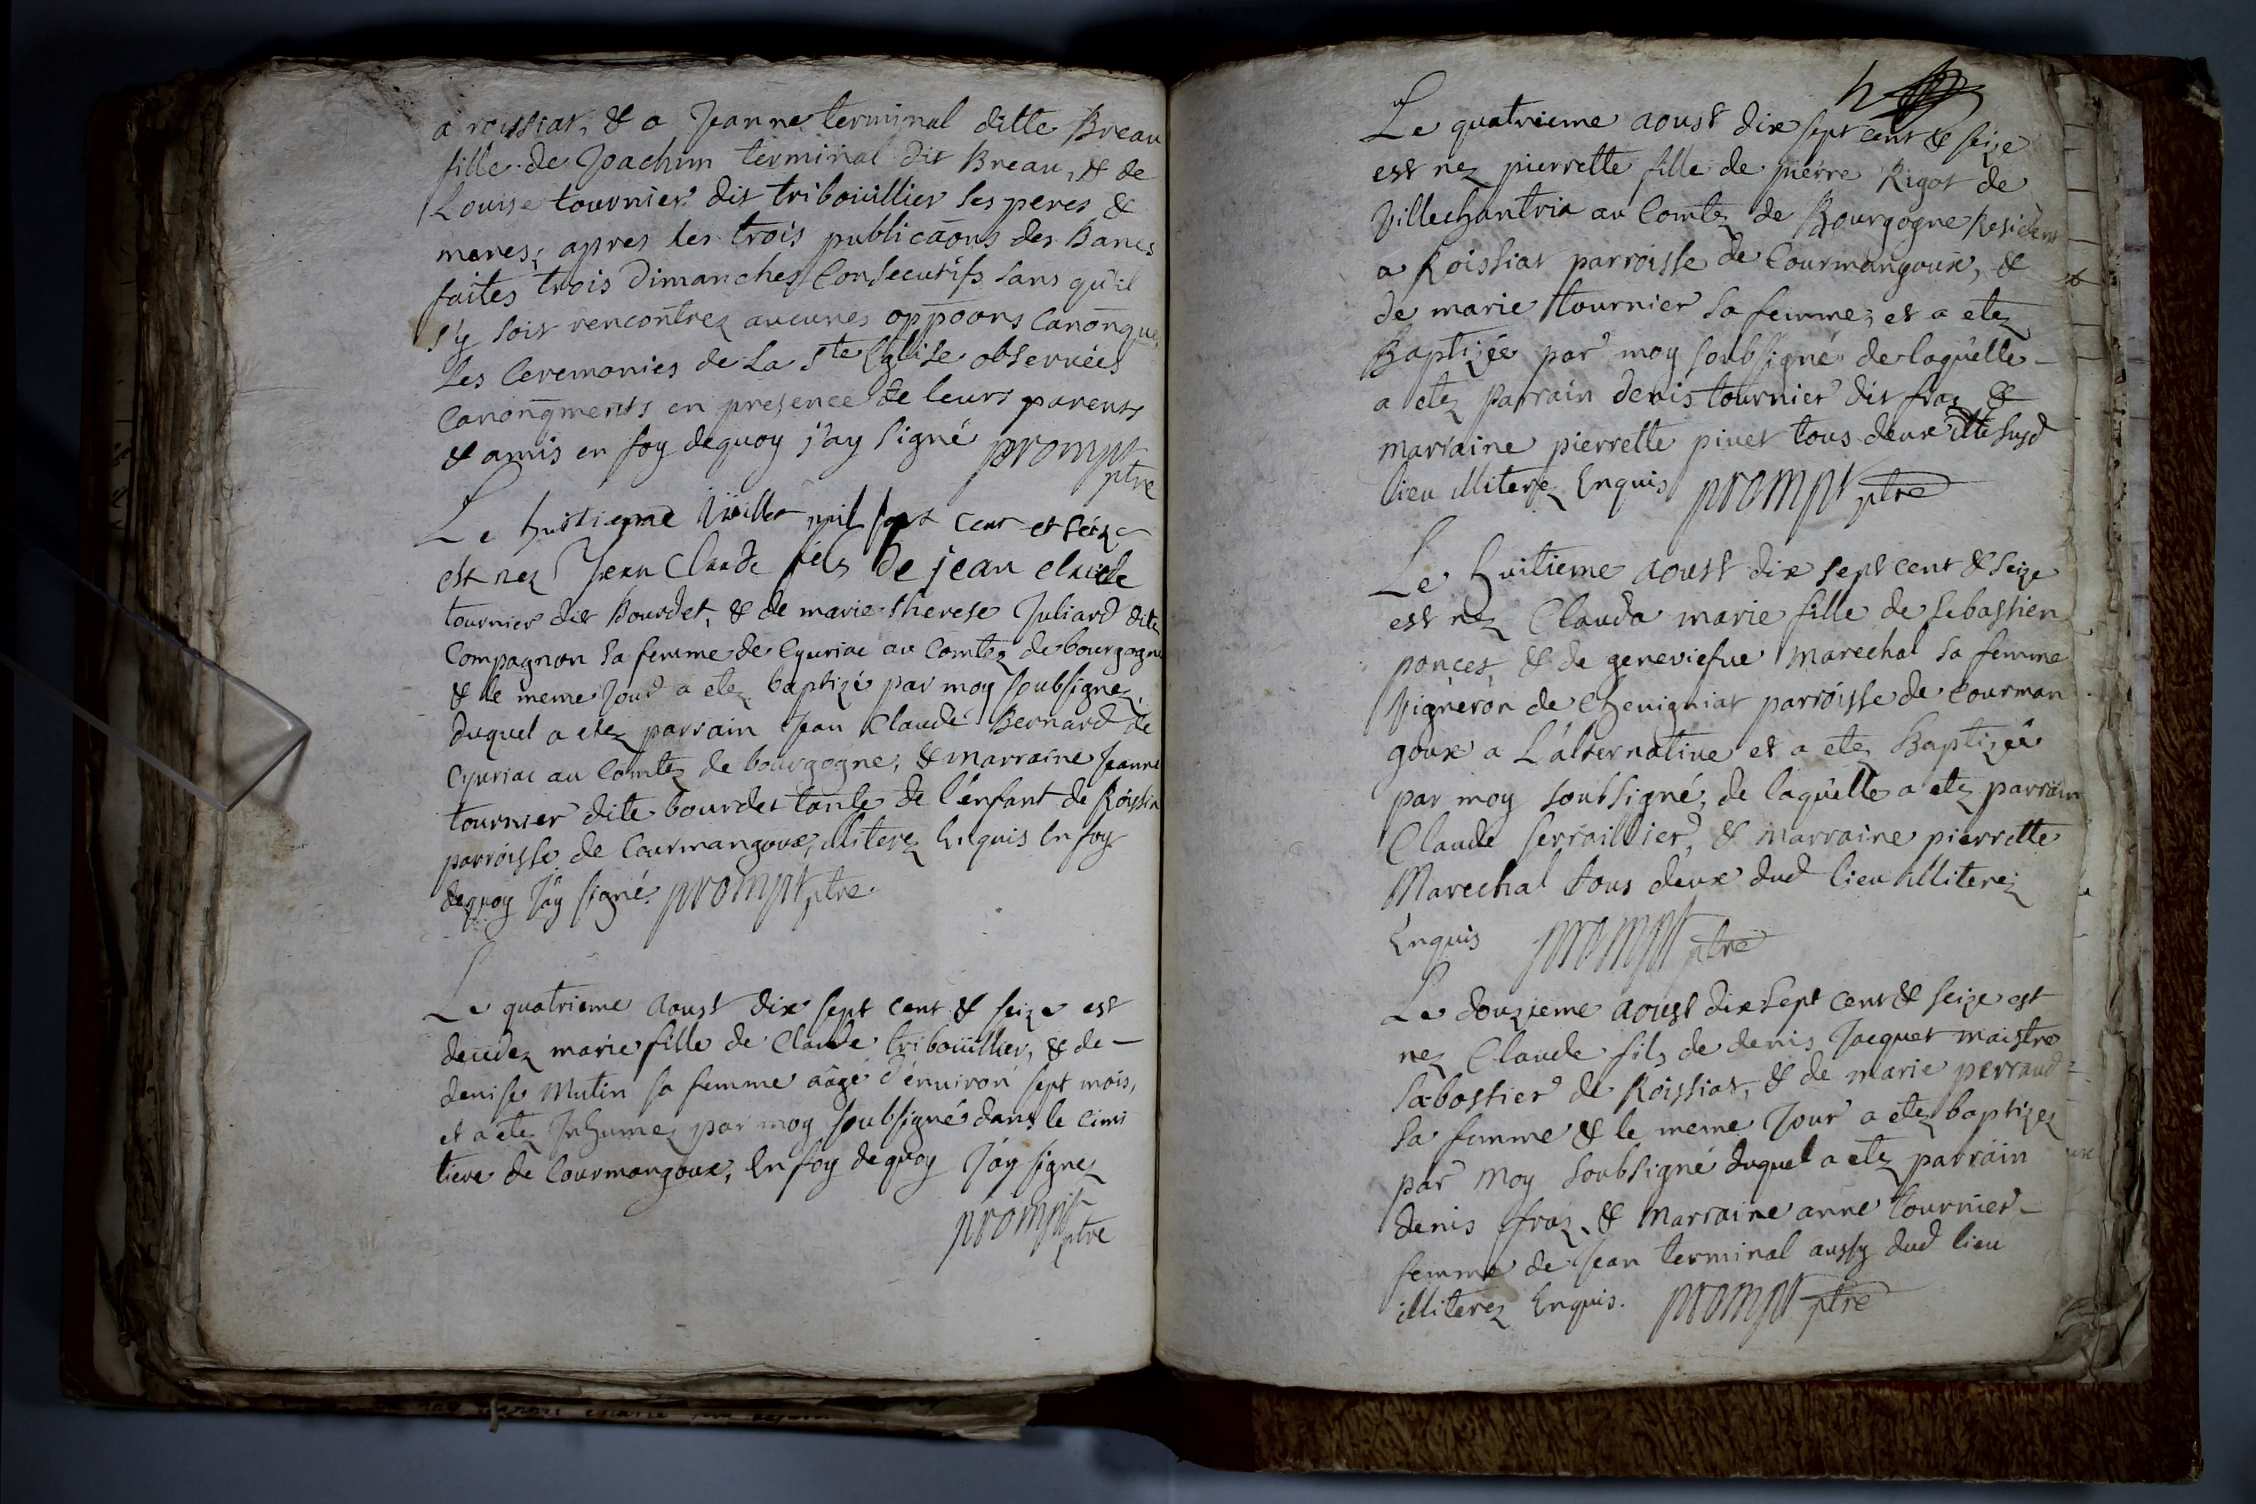 a roissiat, & a Jeanne terminal ditte Breau
fille de Joachim terminal dit Breau, & de
Louise tournier dit tribouillier ses peres &
meres, apres les trois publicaõns des Bancs
faites trois Dimanches Consecutifs sans qu'il
s'y soit rencontrez aucunes oppoõns Canoñques
les Ceremonies de La Ste Eglise observées
Canoñqments en presence de leurs parents
& amis en foy dequoy j'ay signé prompt
ptre
Le huitieme Juillet mil sept cent et seiz
est nez Jean Claude fils de jean claude
tournier dit Bourdet, & de marie therese Juliard dite
Compagnon sa femme de Cyuriac au Comtez de bourgogne
& le meme Jour a etez baptizé par moy soubsignez
duquel a etez parrain Jean Claude Bernard de
Cyuriac au Comtez de bourgogne, & marraine Jeanne
tournier dite bourdet tante de l'enfant de Roissia
parroisse de Courmangoux, illiterez Enquis En foy
dequoy J'ay signé. prompt ptre
Le quatrieme Aoust dix sept cent & seize est
decedez marie fille de Claude tribouillier, & de
denise Mutin sa femme aâgé d'enuiron sept mois,
et a etez Inhumez par moy soubsigné dans le cimi
tiere de Courmangoux, En foy dequoy J'ay signez
prompt
ptre
Le quatrieme aoust dix sept cent & seize
est nez pierrette fille de pierre Rigot de
Villechantria au Comtez de Bourgogne Resident
a Roissiat parroisse de Courmangoux, &
de marie tournier sa femme, et a etez
Baptizée par moy soubsigné de laquelle
a etez parrain denis tournier dit fraz &
marraine pierrette piuet tous deux dud susd
lieu illiterez Enquis prompt ptre
Le huitieme aoust dix sept cent & seize
est nez Clauda marie fille de sebastien
poncet, & de geneviefue Marechal sa femme
Vigneron de Chevigniat parroisse de Courman
goux a L'alternatiue et a etez Baptizée
par moy soubsigné, de laquelle a etez parrain
Claude serraillier, & Marraine pierrette
Marechal tous deux dud lieu illiterez
Enquis prompt ptre
Le douzieme aoust dix sept cent & seize est
nez Claude fils de denis Jacquet maistre
sabottier de Roissiat, & de marie perraud
sa femme & le meme Jour a etez baptizez
par Moy soubsigné duquel a etez parrain
denis fraz, & Marraine anne tournier
femme de Jean terminal aussy dud lieu
illiterez Enquis. prompt ptre